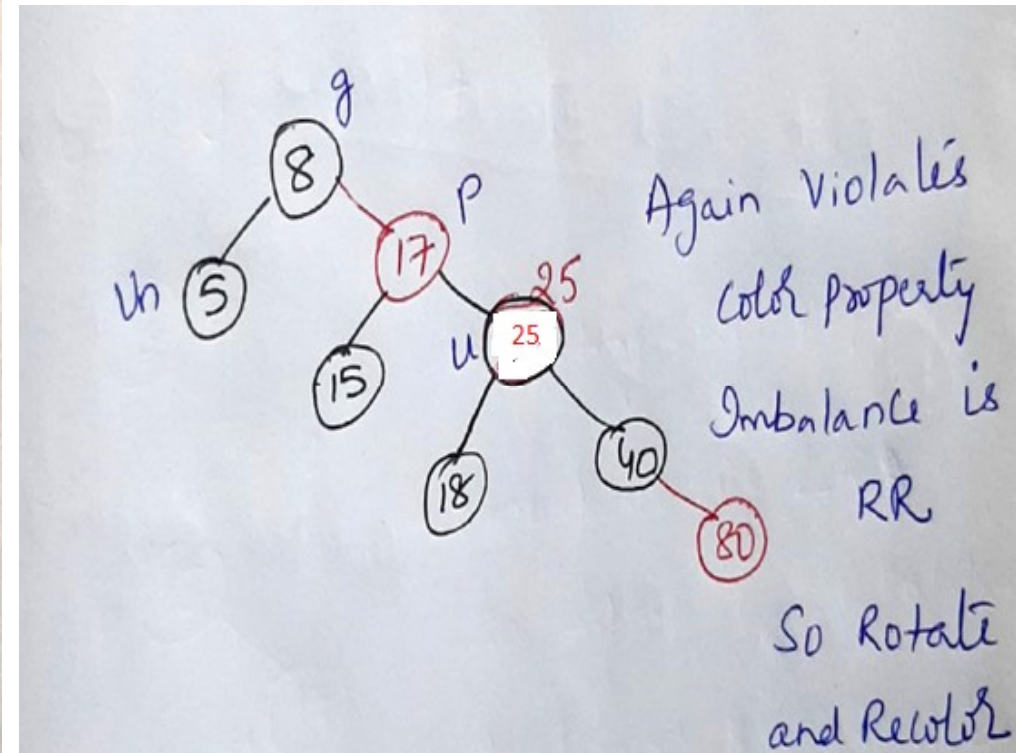 g
8
P
17
Un 5
15
25
u 25
18
40
80
Again Violates
Color Property
Imbalance is
RR
So Rotate
and Recolor